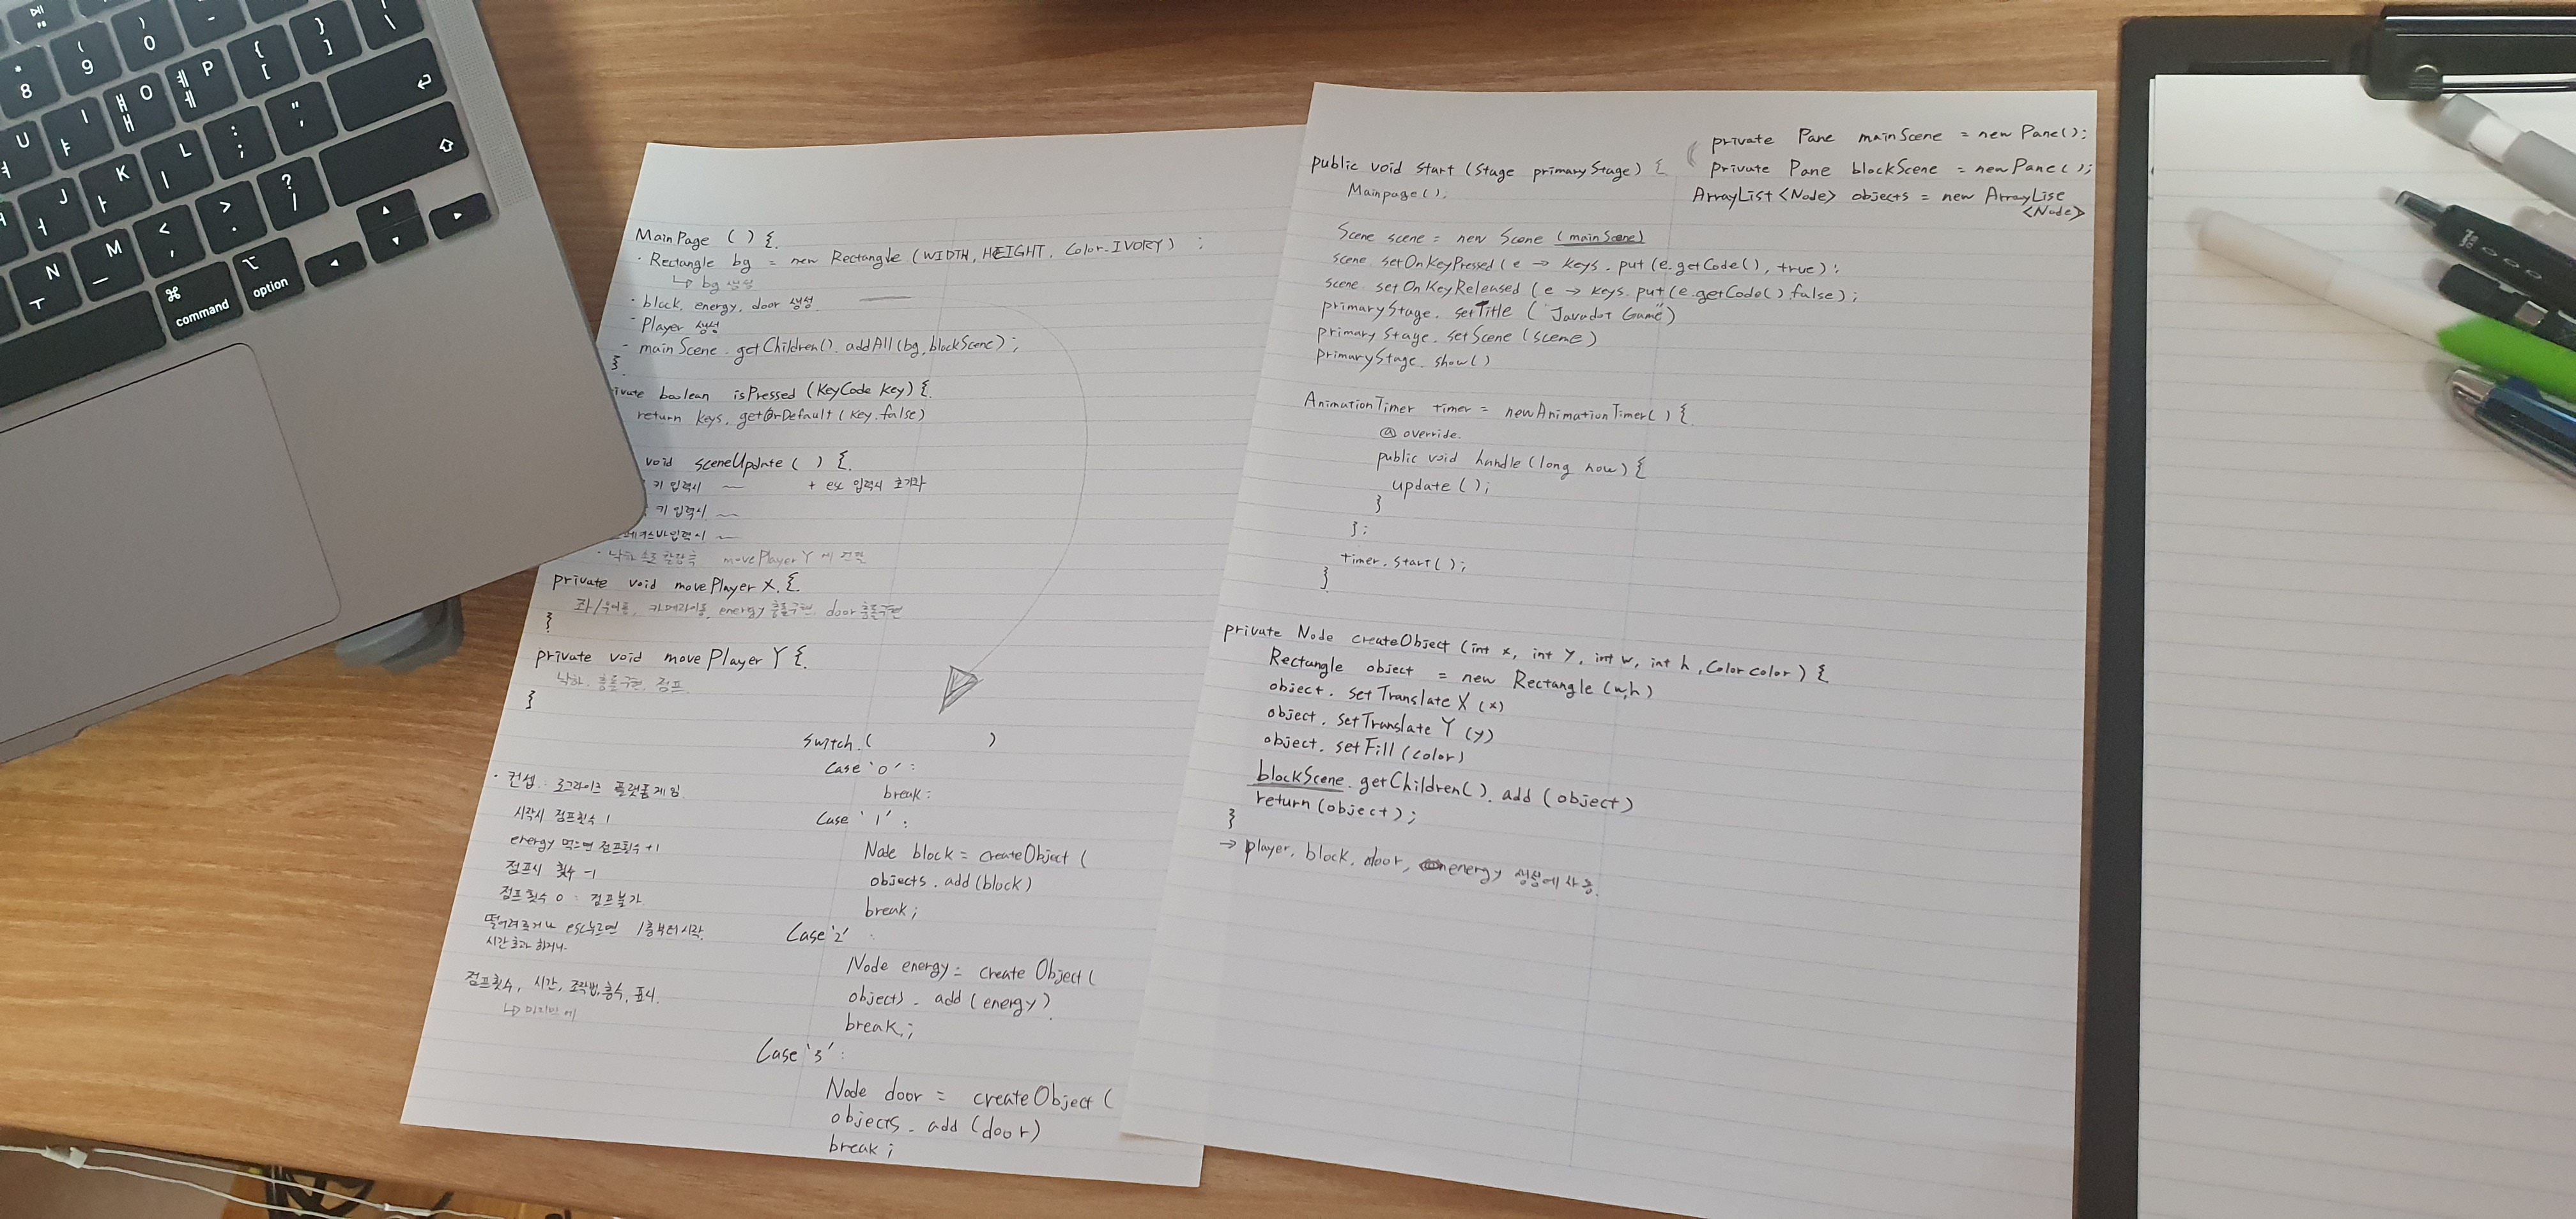 MainPage () {
· Rectangle bg = new Rectangle (WIDTH, HEIGHT, Color.IVORY) ;
↳ bg 생성
· block, energy, door 생성
- Player 생성
- mainScene. getChildren(). addAll(bg, blockScene);
}
ivate boolean isPressed (KeyCode key) {
return keys. getOrDefault (key. false)
void sceneUpdate ( ) {
키 입력시 ~ + esc 입력시 초기화
키 입력시 ~
스바입력시 ~
movePlayer Y 에
private void movePlayer X {
좌/우이동, 카메라이동, energy 충돌구현, door 충돌구현
}
private void movePlayer Y {
낙하, 충돌구현, 점프
}
switch (            )
Case '0' :
break:
Case '1' :
Node block = createObject (
objects. add (block)
break;
Case '2' :
Node energy = create Object (
objects. add (energy)
break;
Case '3' :
Node door = createObject (
objects. add (door)
break;
· 컨셉 : 로그라이크 플랫폼게임
시작시 점프횟수 1
energy 먹으면 점프횟수 +1
점프시 횟수 -1
점프횟수 0 : 점프불가
떨어져죽거나 esc누르면 1층부터시작.
시간초과 하거나
점프횟수, 시간, 조작법, 층수, 표시.
private Pane mainScene = new Pane();
private Pane blockScene = new Pane();
ArrayList <Node> objects = new ArrayLise
<Node>
public void start (Stage primaryStage) {
Mainpage();
Scene scene = new Scene (mainScene)
scene. setOnKeyPressed (e → keys. put (e.getCode(), true);
scene. setOnKeyReleased (e → keys. put (e.getCode() false);
primaryStage. setTitle ("Javadot Game")
primary Stage. setScene (scene)
primaryStage. show()
AnimationTimer timer = newAnimationTimer() {
@ override.
public void handle (long now) {
update ();
}
};
timer. start();
}
private Node createObject (int x, int y, int w, int h, Color color) {
Rectangle object = new Rectangle (w,h)
object. setTranslate X (x)
object. setTranslate Y (y)
object. setFill (color)
blockScene. getChildren(). add (object)
return (object);
}
→ player, block, door, energy 생성에 사용.
8
( 9
) 0
-
{ [
} ]
\
U ㅕ
I ㅑ
O ㅐ ㅒ
P ㅔ ㅖ
J ㅓ
K ㅏ
L ㅣ
: ;
" '
N ㅜ
M ㅡ
< ,
> .
? /
⌘ command
⌥ option